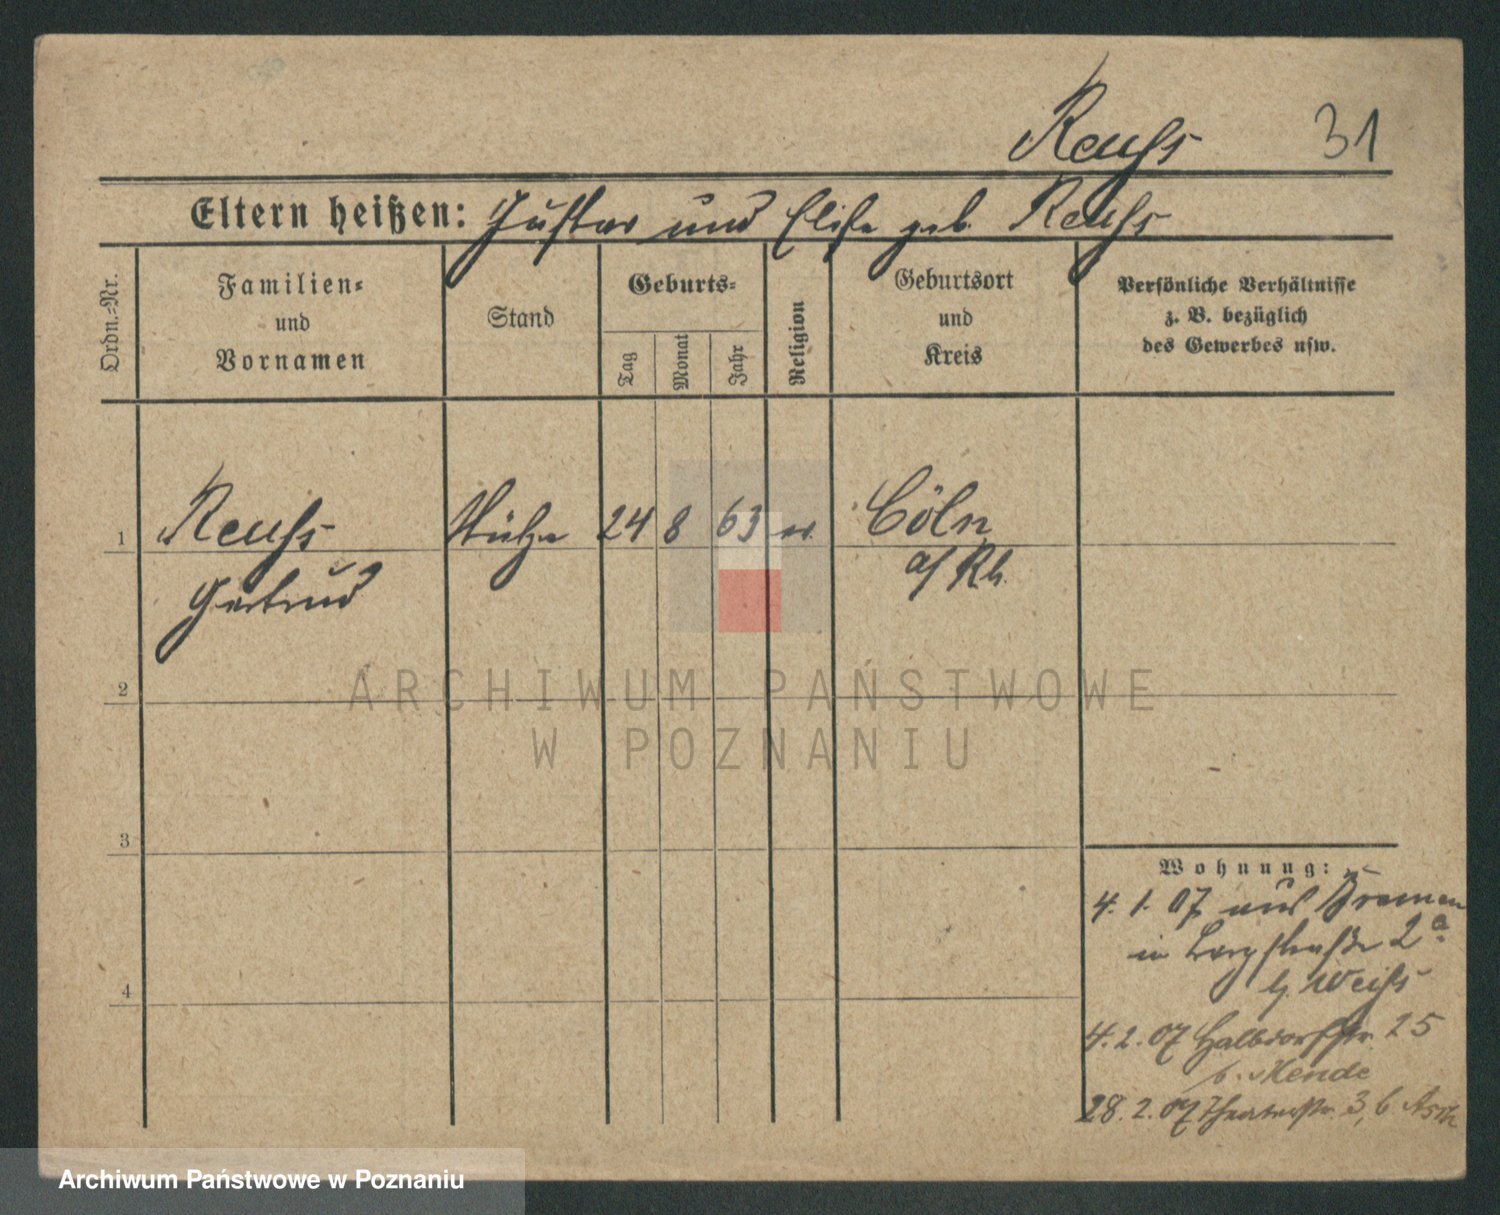 Reuß 31
Eltern heißen: Gustav und Elise geb. Reuß
Ordn.-Nr.
Familien-
und
Vornamen
Stand
Geburts-
Tag
Monat
Jahr
Religion
Geburtsort
und
Kreis
Persönliche Verhältnisse
z. B. bezüglich
des Gewerbes usw.
1 Reuß Stütze 24 8 63 ev. Cöln
a/Rh.
Gertrud
2
ARCHIWUM PAŃSTWOWE
W POZNANIU
3
4
Wohnung:
4. 1. 07 aus Bremen
in Bergstraße 2a
b. Weiß
4. 2. 07 Halbdorfstr. 25
b. Mende
28. 2. 07 Theaterstr. 3, b
Archiwum Państwowe w Poznaniu